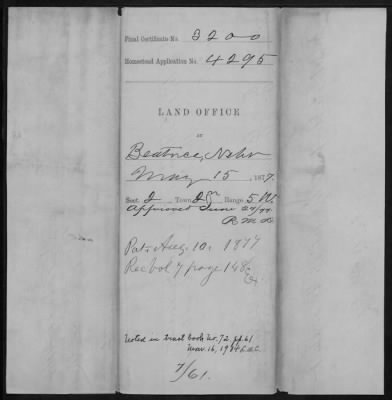 Final Certificate No. 3200
Homestead Application No. 4295
LAND OFFICE
AT
Beatrice, Nebr
May 15, 1877.
Sect. 2 Town 2 Range 5 W.
Approved June
Pat. Aug. 10. 1877
Rec vol 7 page 148
Noted in tract book No. 72 pg. 61
Mar. 16, 19
7/61.